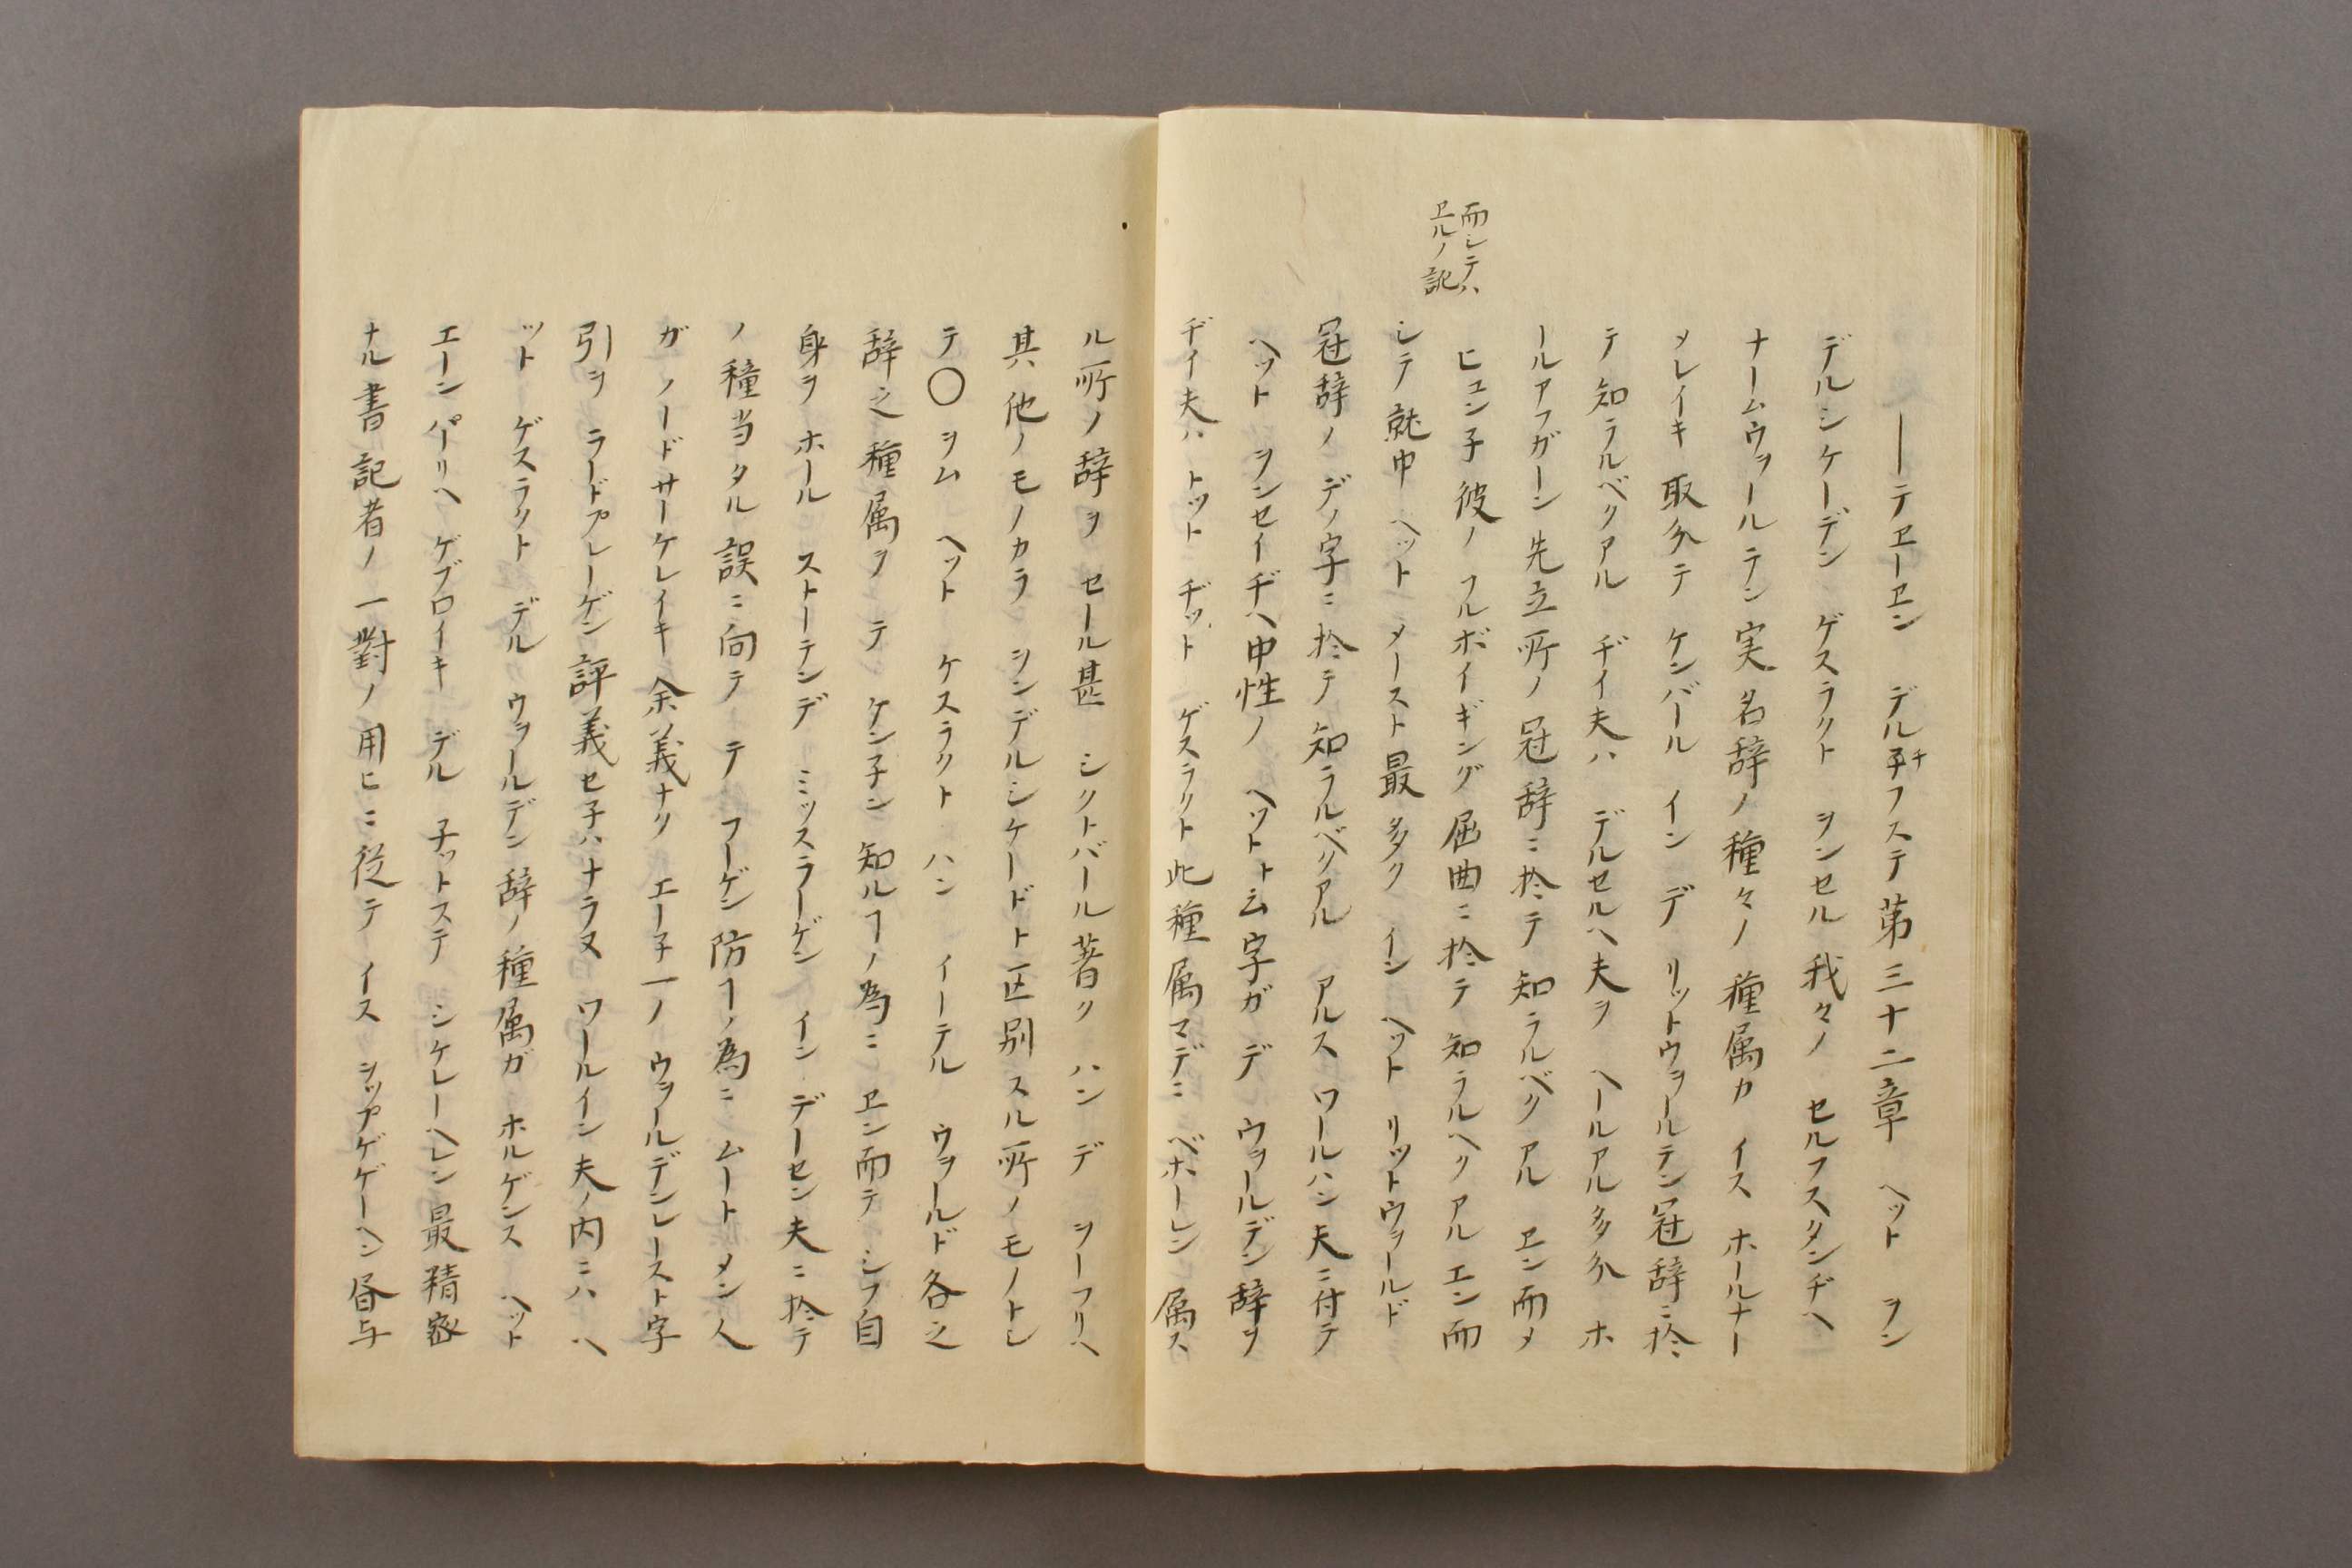 而シテハ
ヱルノ記
―テヱーヱン デル子フステ第三十二章 ヘット ヲン
チ
デルシケーデン ゲスラクト ヲンセル 我々ノ セルフスタンヂヘ
ナームウヲールテン実名辞ノ種々ノ種属カ イス ホールナー
メレイキ取分テ ケンバール イン デ リットウヲールテン冠辞ニ於
テ知ラルベクアル ヂイ夫ハ デルセルヘ夫ヲ ヘールアル多分 ホ
ールアフガーン先立所ノ冠辞ニ於テ知ラルベクアル ヱン而メ
ヒュン子彼ノ フルボイギング屈曲ニ於テ知ラルヘクアルエン而
シテ就中 ヘット メースト最多ク イン ヘット リットウヲールド
冠辞ノ デノ字ニ於テ知ラルベクアル アルス ワールハン夫ニ付テ
ヘット ヲンセイヂヘ中性ノ ヘットト云字ガ デ ウヲールデン辞ヲ
ヂイ夫ハ トット ヂット ゲスラクト此種属マデニ ベホーレン属ス
ル所ノ辞ヲ セール甚 シクトバール著ク ハン デ ヲーフリヘ
其他ノモノカラ ヲンデルシケードト区別スル所ノモノトシ
テ〇ヲム ヘット ケスラクト ハン イーテル ウヲールド各之
辞之種属ヲ テ ケン子ン知ルヿノ為ニ ヱン而テ シフ自
身ヲ ホール ストーテンデ ミッスラーゲン イン デーセン夫ニ於テ
ノ種当タル誤ニ向テ テ フーゲン防ヿノ為ニ ムート メン人
ガ ノードサーケレイキ余義ナク エー子一ノ ウヲールデンレースト字
引ヲ ラードプレーゲン評義セ子ハナラヌ ワールイン夫ノ内ニハ ヘ
ット ゲスラクト デル ウヲールデン辞ノ種属ガ ホルゲンス ヘット
エーン パーリヘ ゲブロイキ デル 子ットステ シケレーヘレン最精密
ナル書記者ノ一對ノ用ヒニ従テ イス ヲップゲゲーヘン昼与